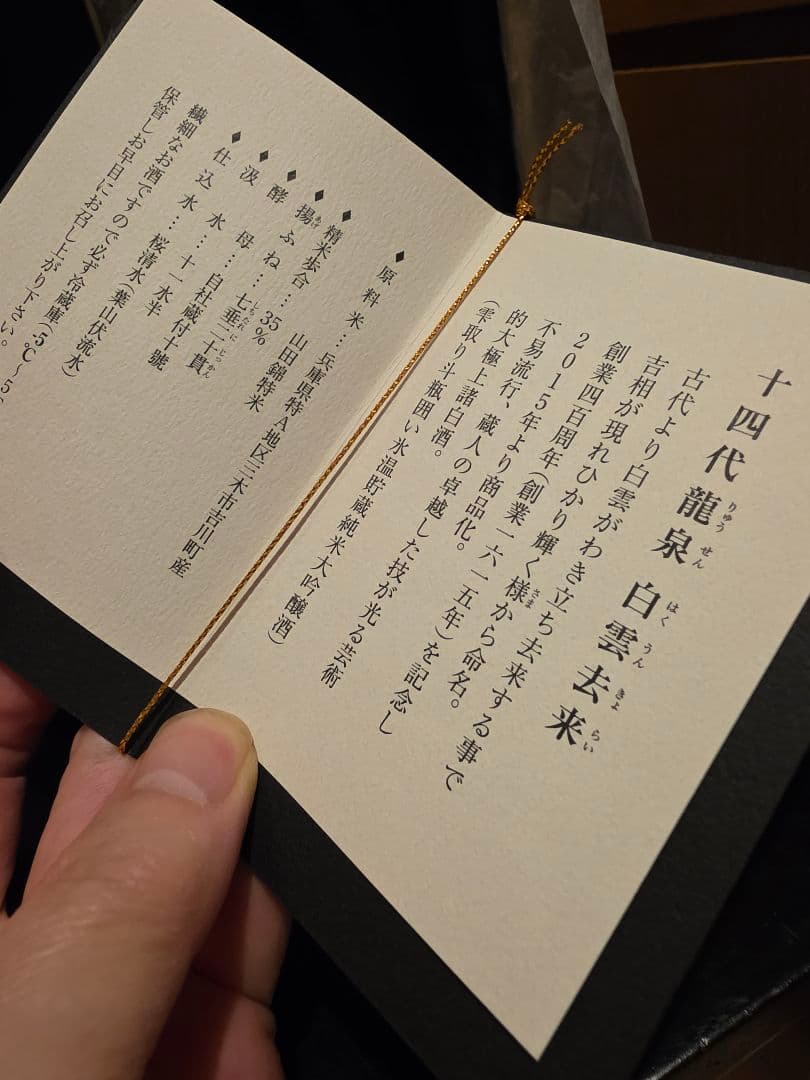 十四代龍泉 白雲去来
りゅう せん はく うん きょ らい
古代より白雲がわき立ち去来する事で
吉相が現れひかり輝く様から命名。
さま
創業四百周年(創業一六一五年)を記念し
2015年より商品化。
不易流行、蔵人の卓越した技が光る芸術
的大極上諸白酒。
(雫取り斗瓶囲い氷温貯蔵純米大吟醸酒)
◆原料米…兵庫県特A地区三木市吉川町産
山田錦特米
◆精米歩合…35%
◆揚ふね…七垂二十貫
あげ しちたれ に じっかん
◆酵母…自社蔵付十號
◆汲水…十一水半
◆仕込水…桜清水(葉山伏流水)
繊細なお酒ですので必ず冷蔵庫(-5℃〜5
保管しお早目にお召し上がり下さい。